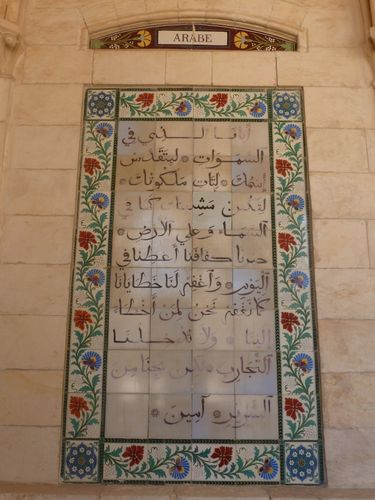 ARABE
أبانا الذي في
السموات * ليتقدس
إسمك * لتات ملكوتك *
لتكن مشيئتك كما في
السماء و علي الارض *
خبزنا كفافنا أعطنا في
اليوم * وأغفر لنا خطايانا
كما نغفر نحن لمن أخطاء
إلينا * ولا تدخلنا
التجارب لكن نجنا من
الشرير * آمين *